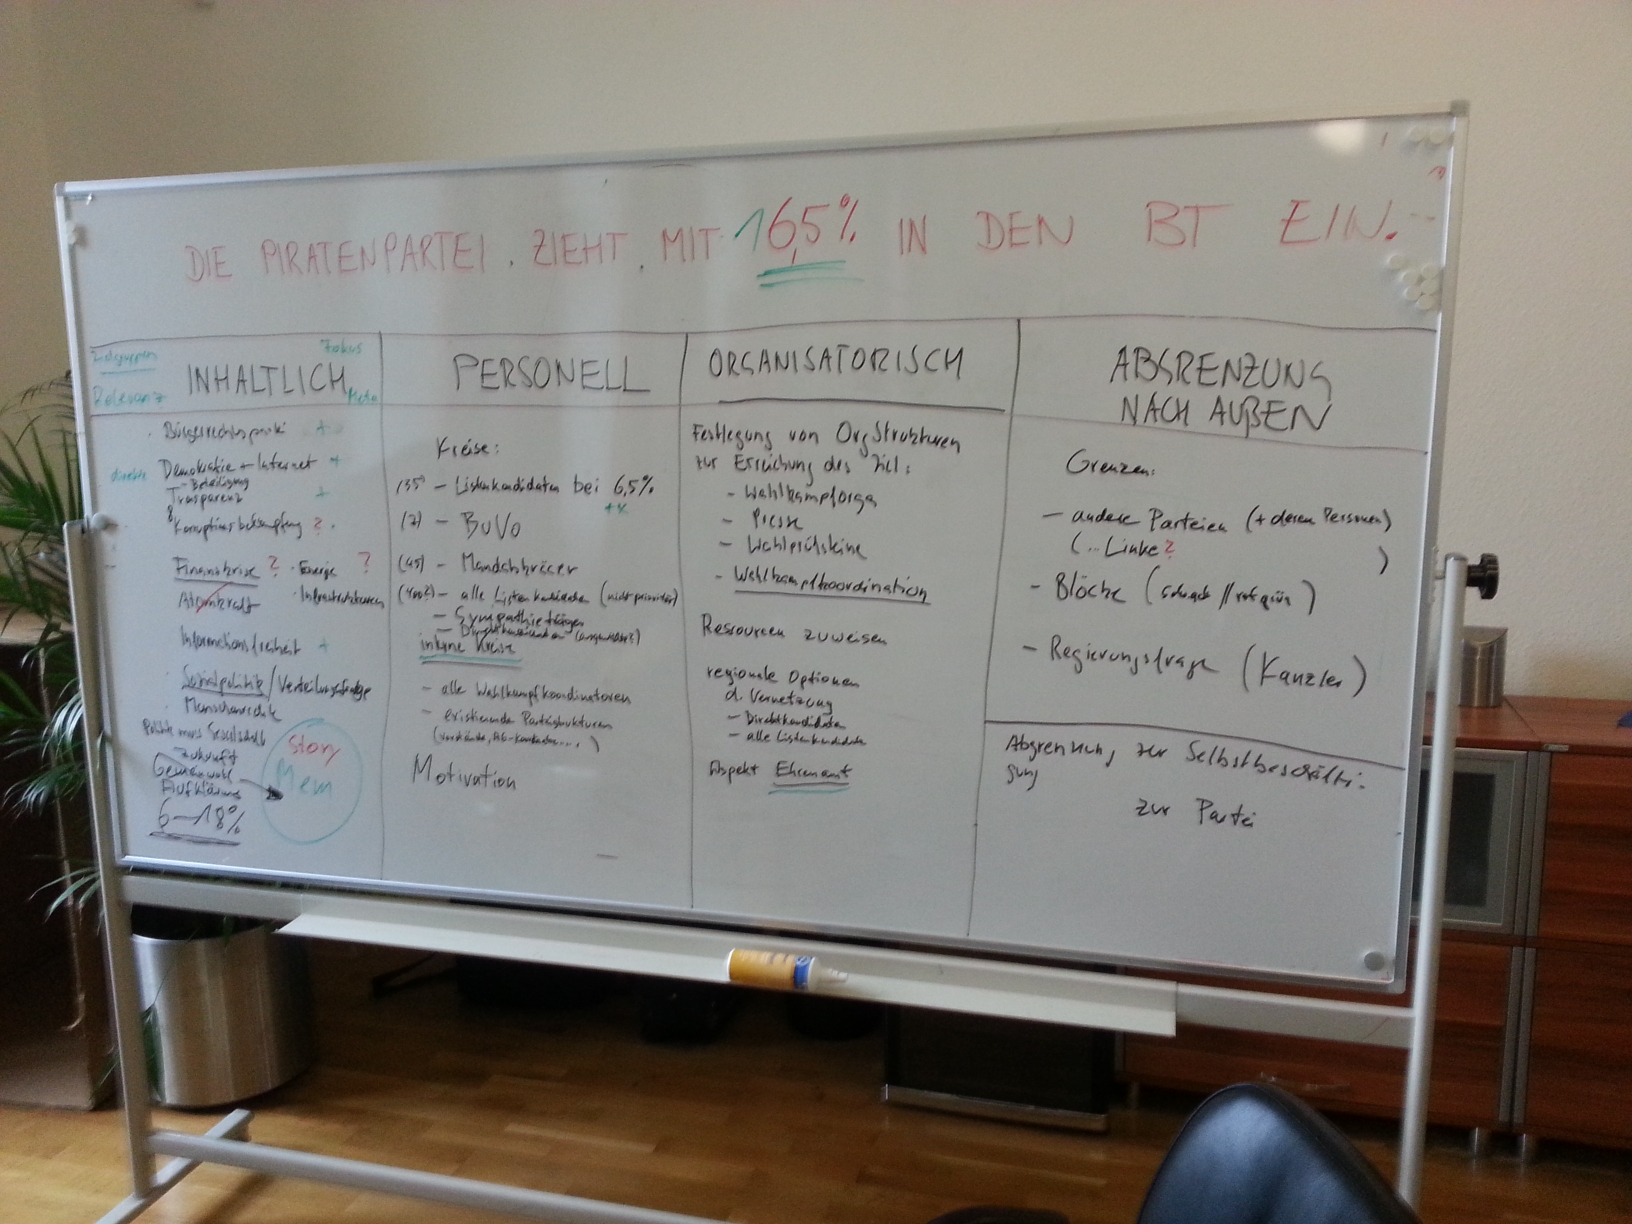 DIE PIRATENPARTEI . ZIEHT . MIT 16,5% IN DEN BT EIN.
Zielgruppen
Fokus
INHALTLICH
Relevanz
Meta
Bürgerrechtspartei +
direkte Demokratie + Internet +
- Beteiligung
Trasparenz +
& Korruptionsbekämpfung ?
Finanzkrise ? · Energie ?
Atomkraft · Infrastrukturen
Informationsfreiheit +
Sozialpolitik / Verteilungsfrage
Menschenrechte
Zukunft
Gemeinwohl
Aufklärung
6–18%
Story
Mem
PERSONELL
Kreise:
(35) – Listenkandidaten bei 6,5%
+x
(7) – BuVo
(45) – Mandatsträger
(400?) – alle Listenkandidaten (nicht prominent)
– Sympathieträger
– Direktkandidaten
interne Kreise
– alle Wahlkampfkoordinatoren
– existierende Parteistrukturen
Motivation
ORGANISATORISCH
Festlegung von OrgStrukturen
zur Erreichung des Ziel:
– Wahlkampforga
– Presse
– Wahlprüfsteine
– Wahlkampfkoordination
Ressourcen zuweisen
regionale Optionen
d. Vernetzung
– Direktkandidaten
– alle Listenkandidaten
Aspekt Ehrenamt
ABGRENZUNG
NACH AUßEN
Grenzen:
– andere Parteien (+ deren Personen)
(... Linke? )
– Blöcke (schwarz // rotgrün)
– Regierungsfrage (Kanzler)
Abgrenzung zur Selbstbeschäfti-
gung
zur Partei